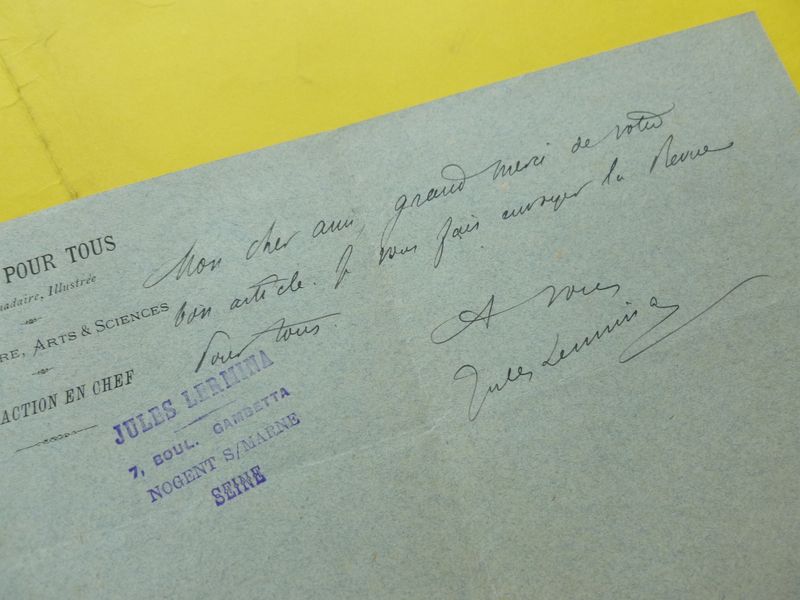 POUR TOUS
madaire, Illustrée
RE, ARTS & SCIENCES
ACTION EN CHEF
Mon cher ami, grand merci de votre
bon article. Je vous fais envoyer la Revue
Pour tous.
A vous
Jules Lermina
JULES LERMINA
7, BOUL. GAMBETTA
NOGENT S/MARNE
SEINE